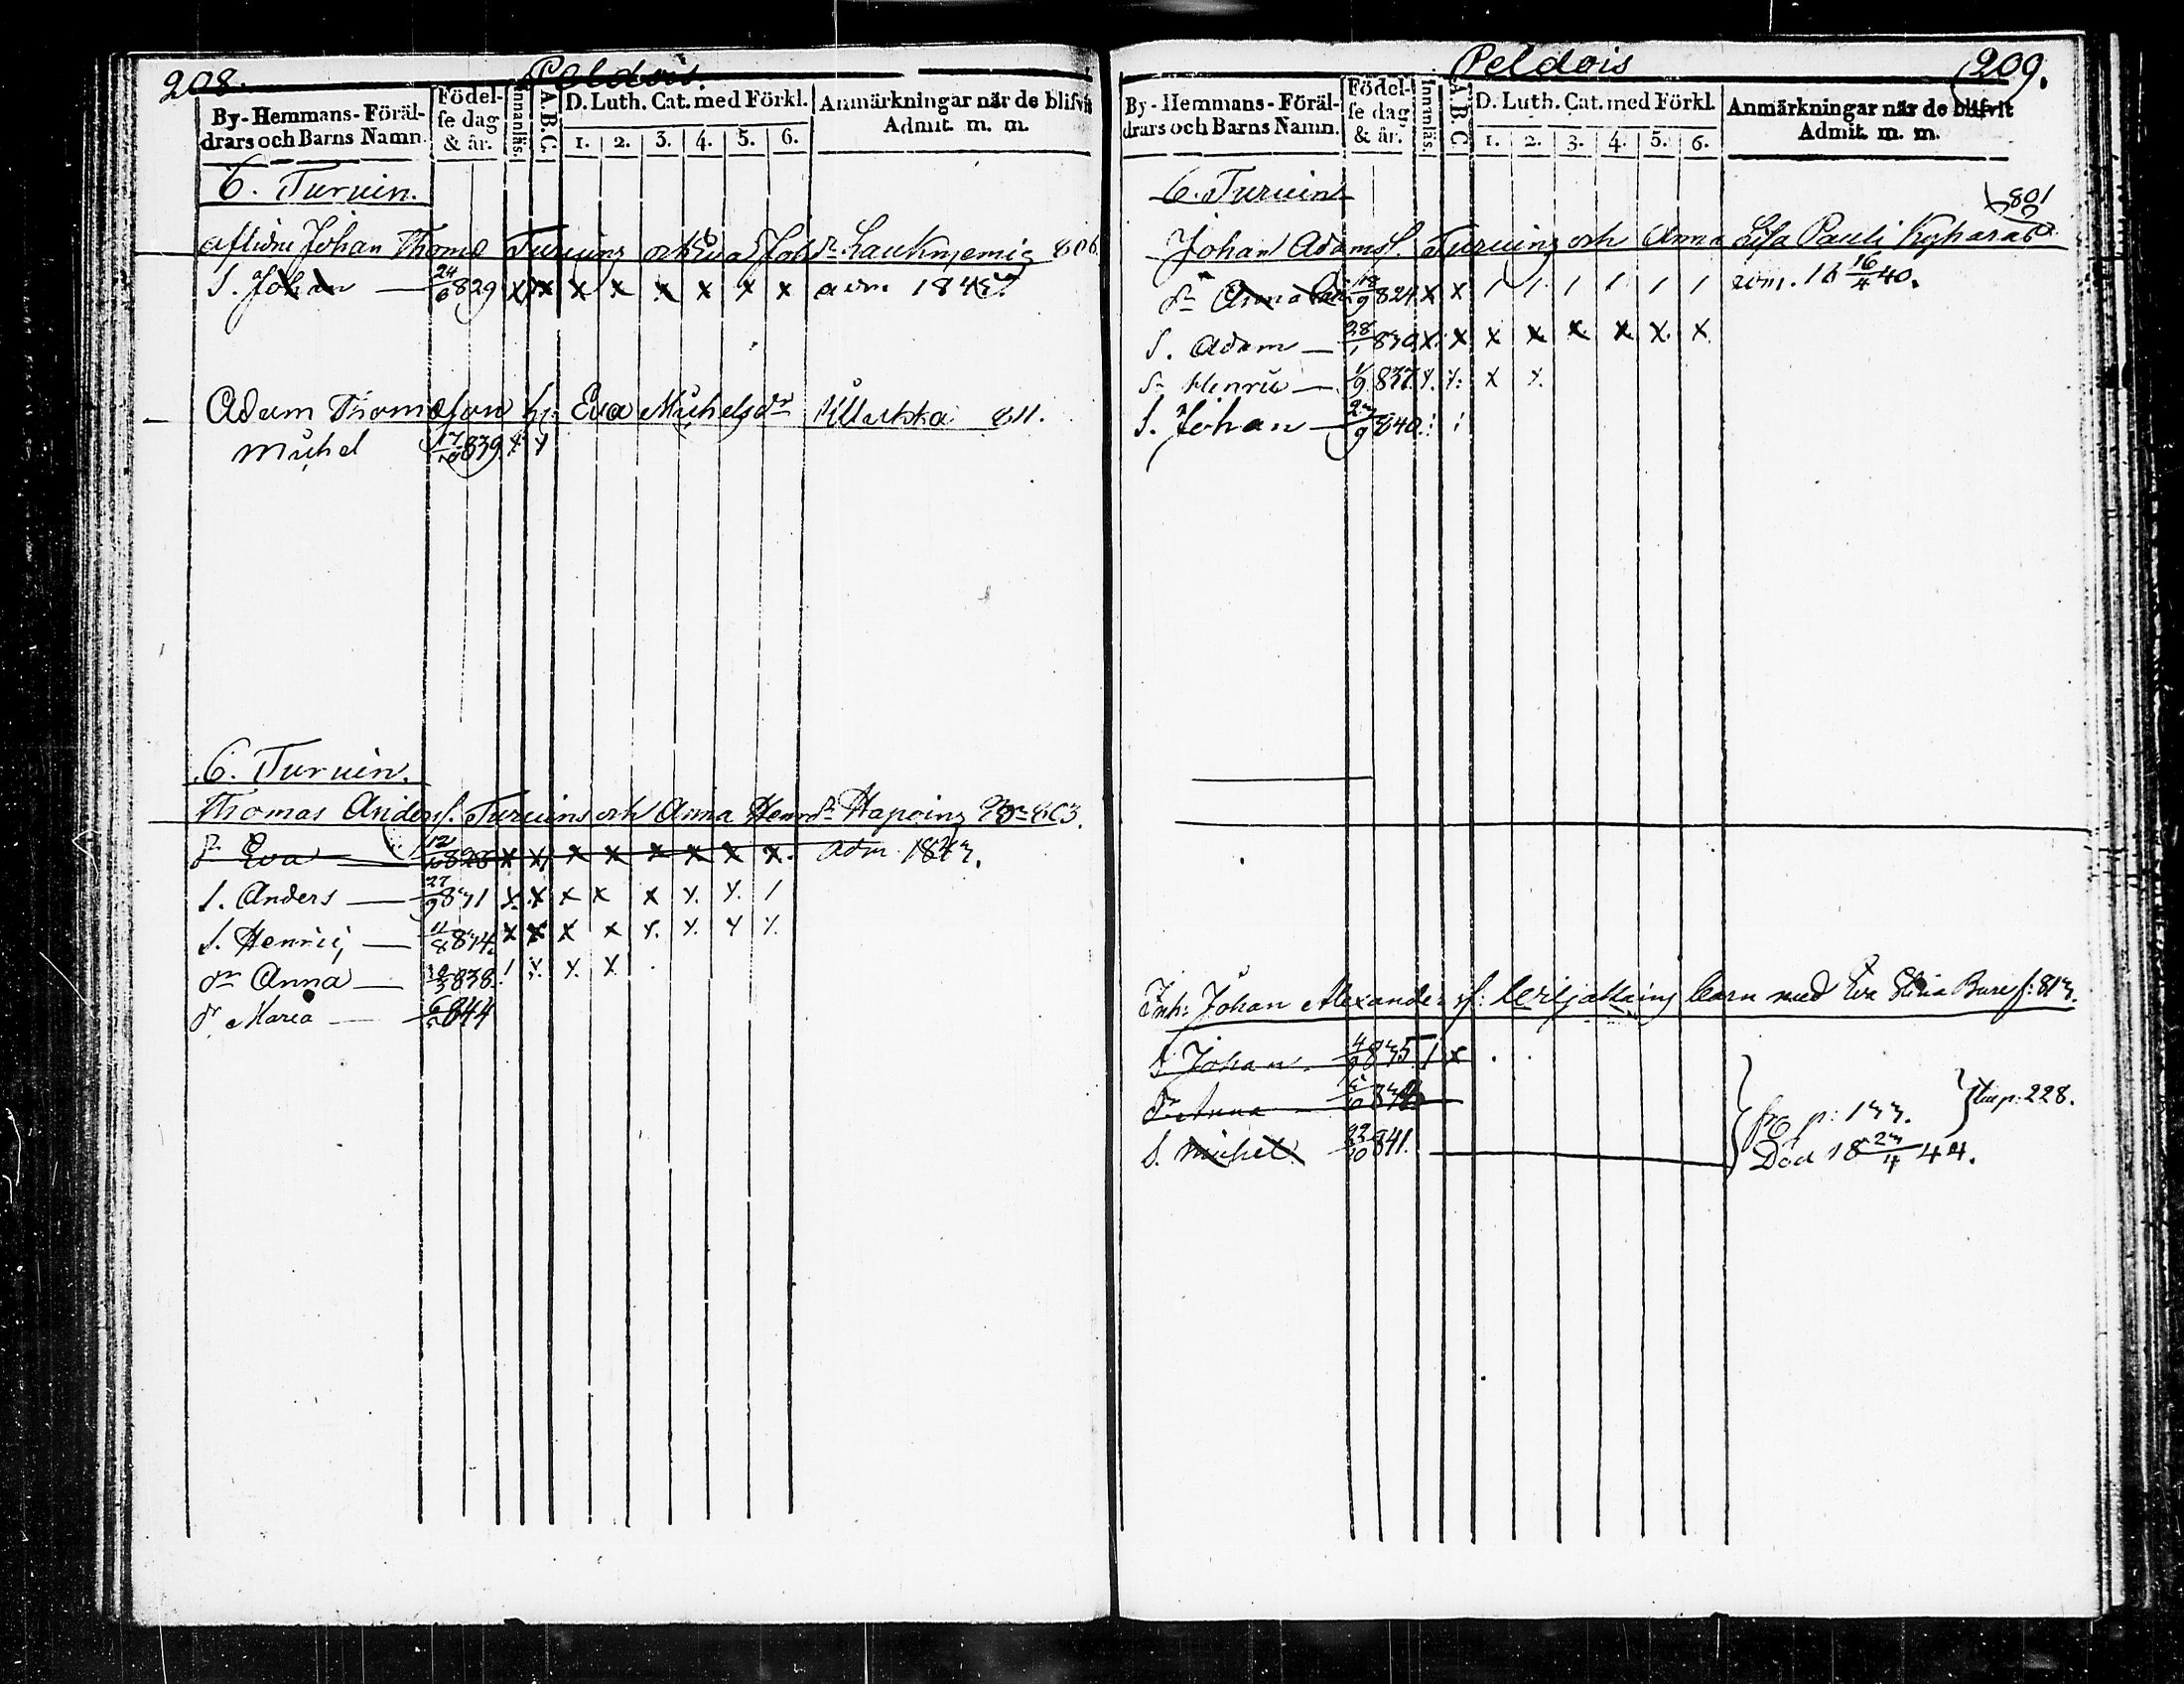 208.
Peldois.
By-Hemmans-Föräl-
drars och Barns Namn.
Födel-
se dag
& år.
Innanläs.
A.B.C.
D. Luth. Cat. med Förkl.
1. 2. 3. 4. 5. 6.
Anmärkningar når de blifvit
Admit. m. m.
6. Turuin.
aflidne Johan Thomæ Turuins och Eva Joh dr 806.
S. Johan — 24/6 829 x x x x x x x x adm 184
Adam Thomæson Eva Michelsdr 811.
Michel 839 x x
6. Turuin.
Thomas Andersf. Turuins och Anna Henr dr Hapoing 803.
dr Eva — 12 828 x x x x x x x x. adm. 1843.
S. Anders — 27/9 831 x x x x x x x /
S. Henric — 11/8 834. x x x x x x x x
dr Anna — 838. / x x x
dr Maria — 844
Peldois
209.
By-Hemmans-Föräl-
drars och Barns Namn.
Födel-
se dag
& år.
Innanläs.
A.B.C
D. Luth. Cat. med Förkl.
1. 2. 3. 4. 5. 6.
Anmärkningar når de blifvit
Admit. m. m.
6. Turuin
801
Johan Adamsf. Turuins och Anna Lisa Pauli
dr Anna 824. x x / / / / / / 18 16/4 40.
S. Adam — 28/1 830 x x x x x x x x
S. Henric — 1/9 837. x x x x
S. Johan — 23/9 840.
Inh: Johan Alexandersf: barn med Eva Buresf: 813.
S Johan 4/9 835 / x
dr Anna
S. Michel. 22/10 841.
p: 133.
p: 228.
Död 18 23/4 44.